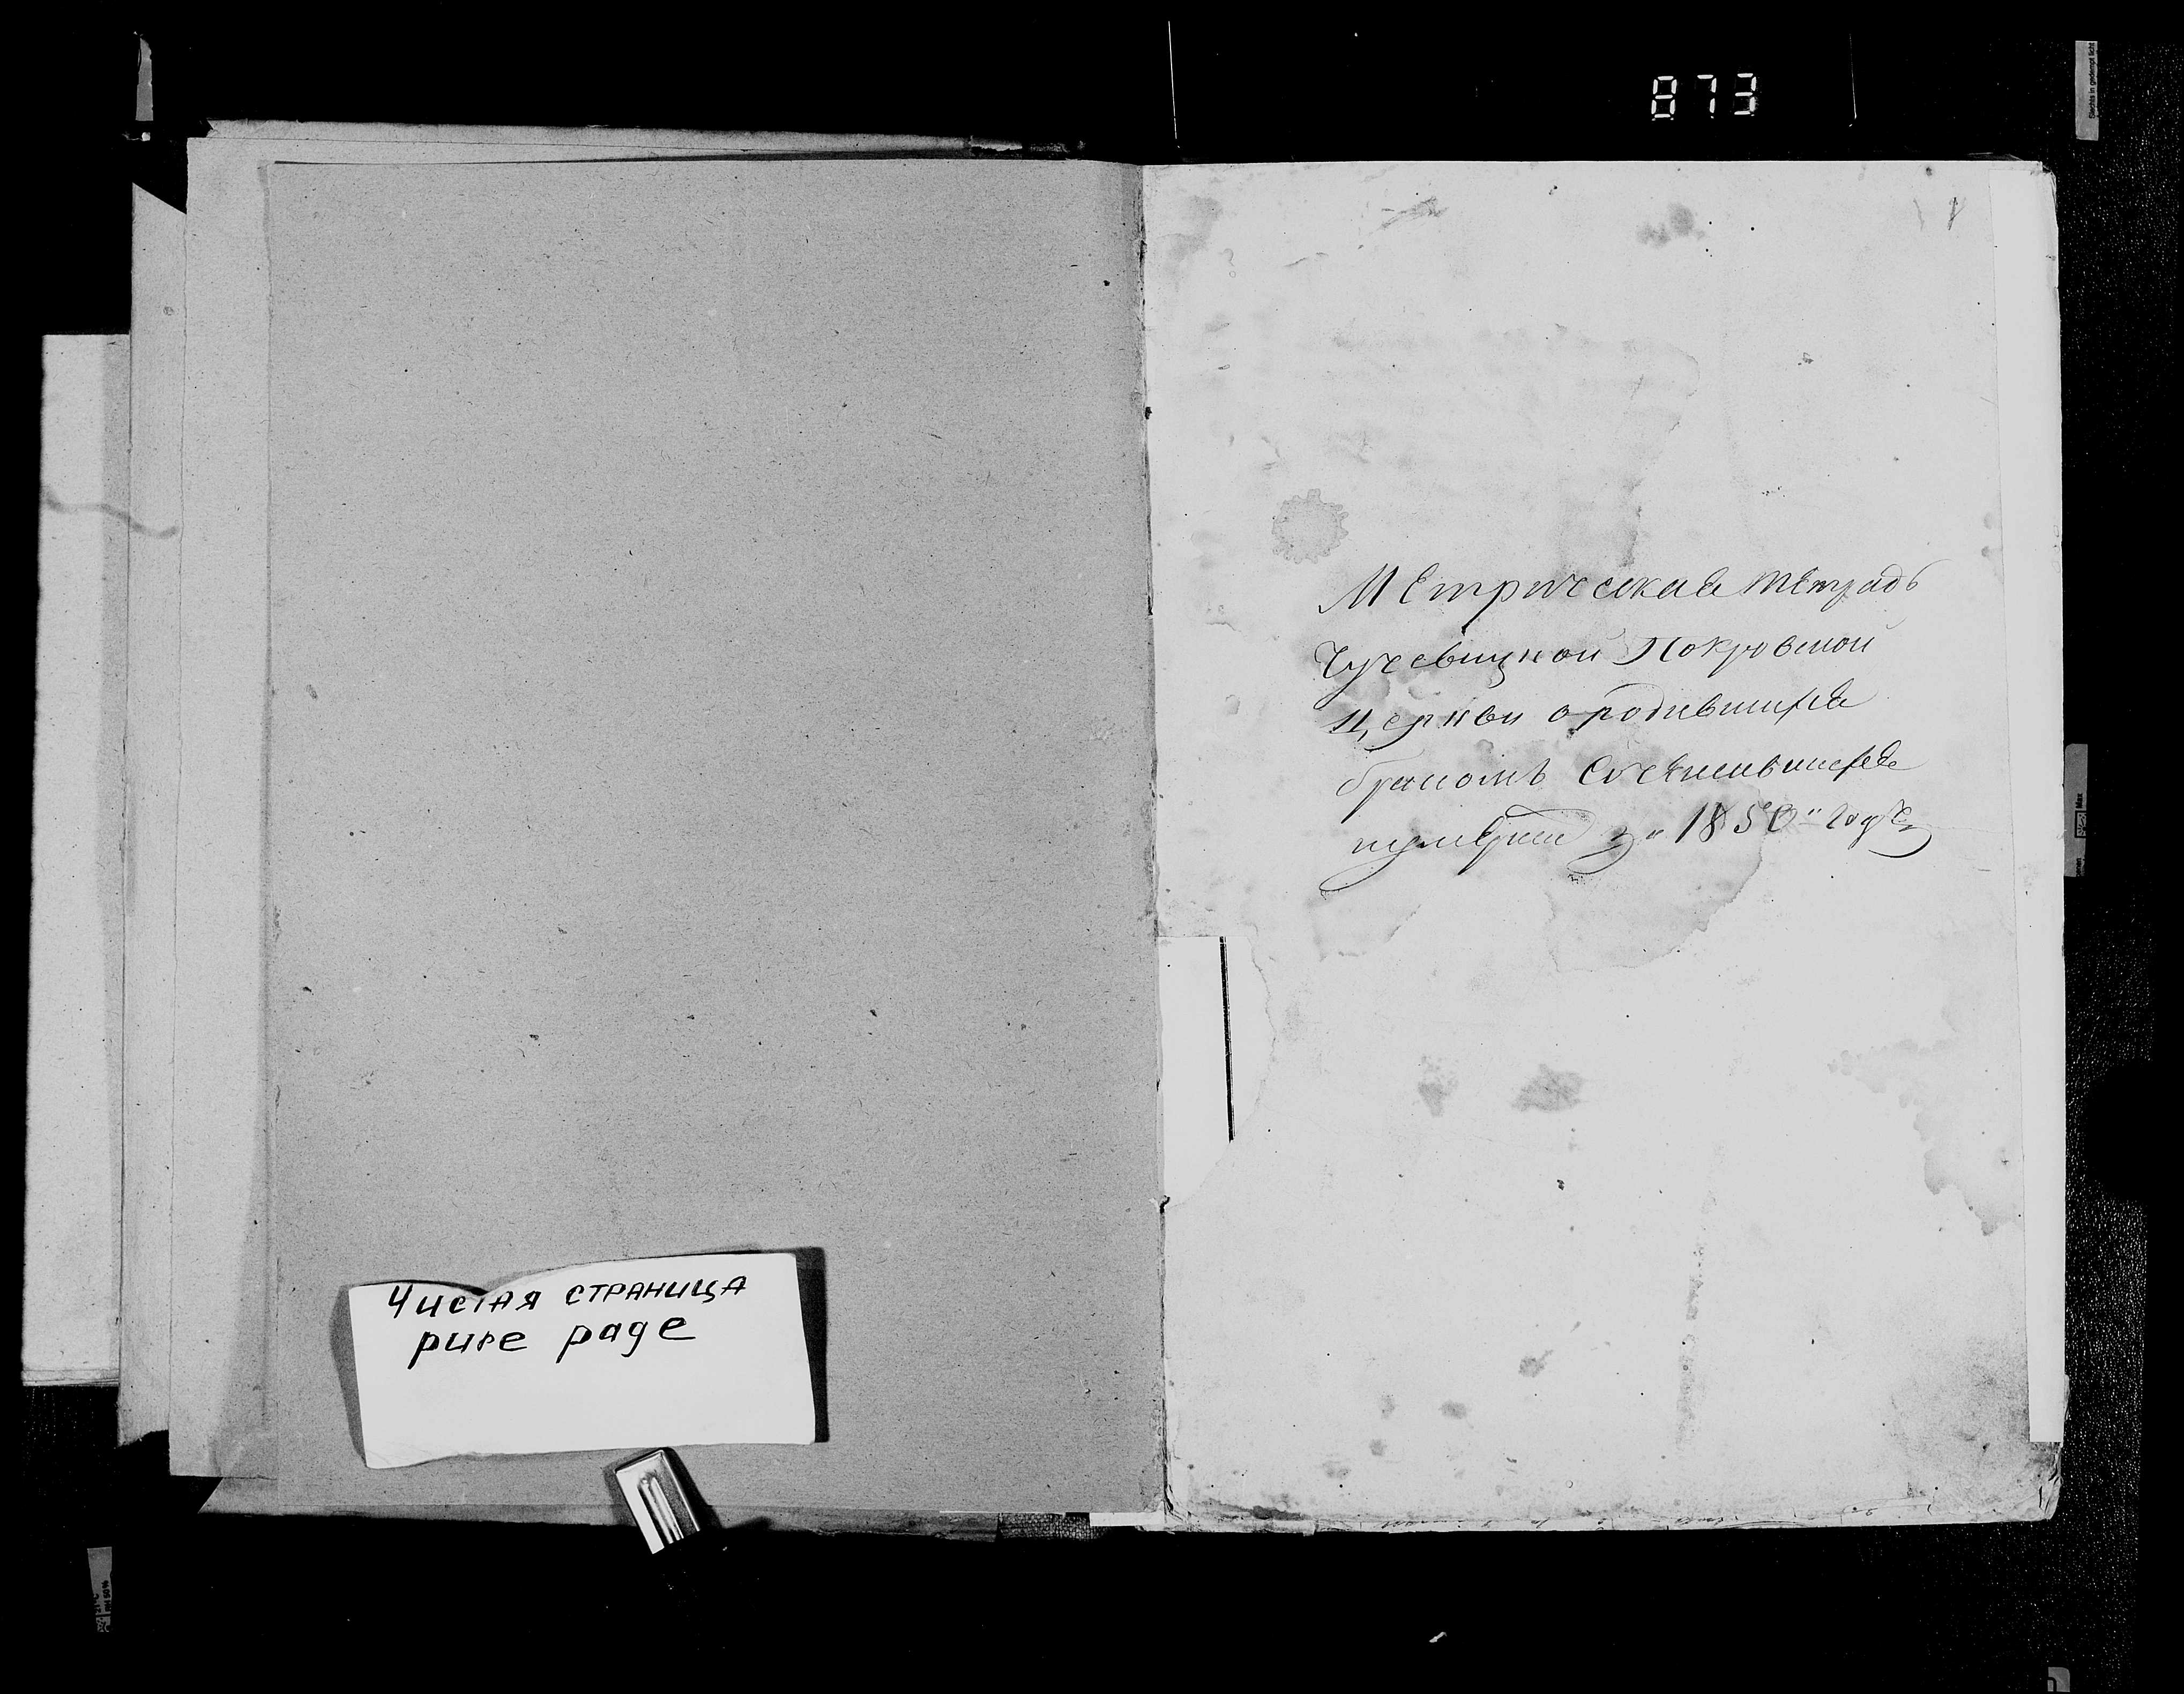 873
1
Метрическая тетрадь
Чучевицкой Покровской
Церкви о родившихся
бракомъ сочетавшихся
и умершихъ за 1850й годъ
Чистая страница
pure page